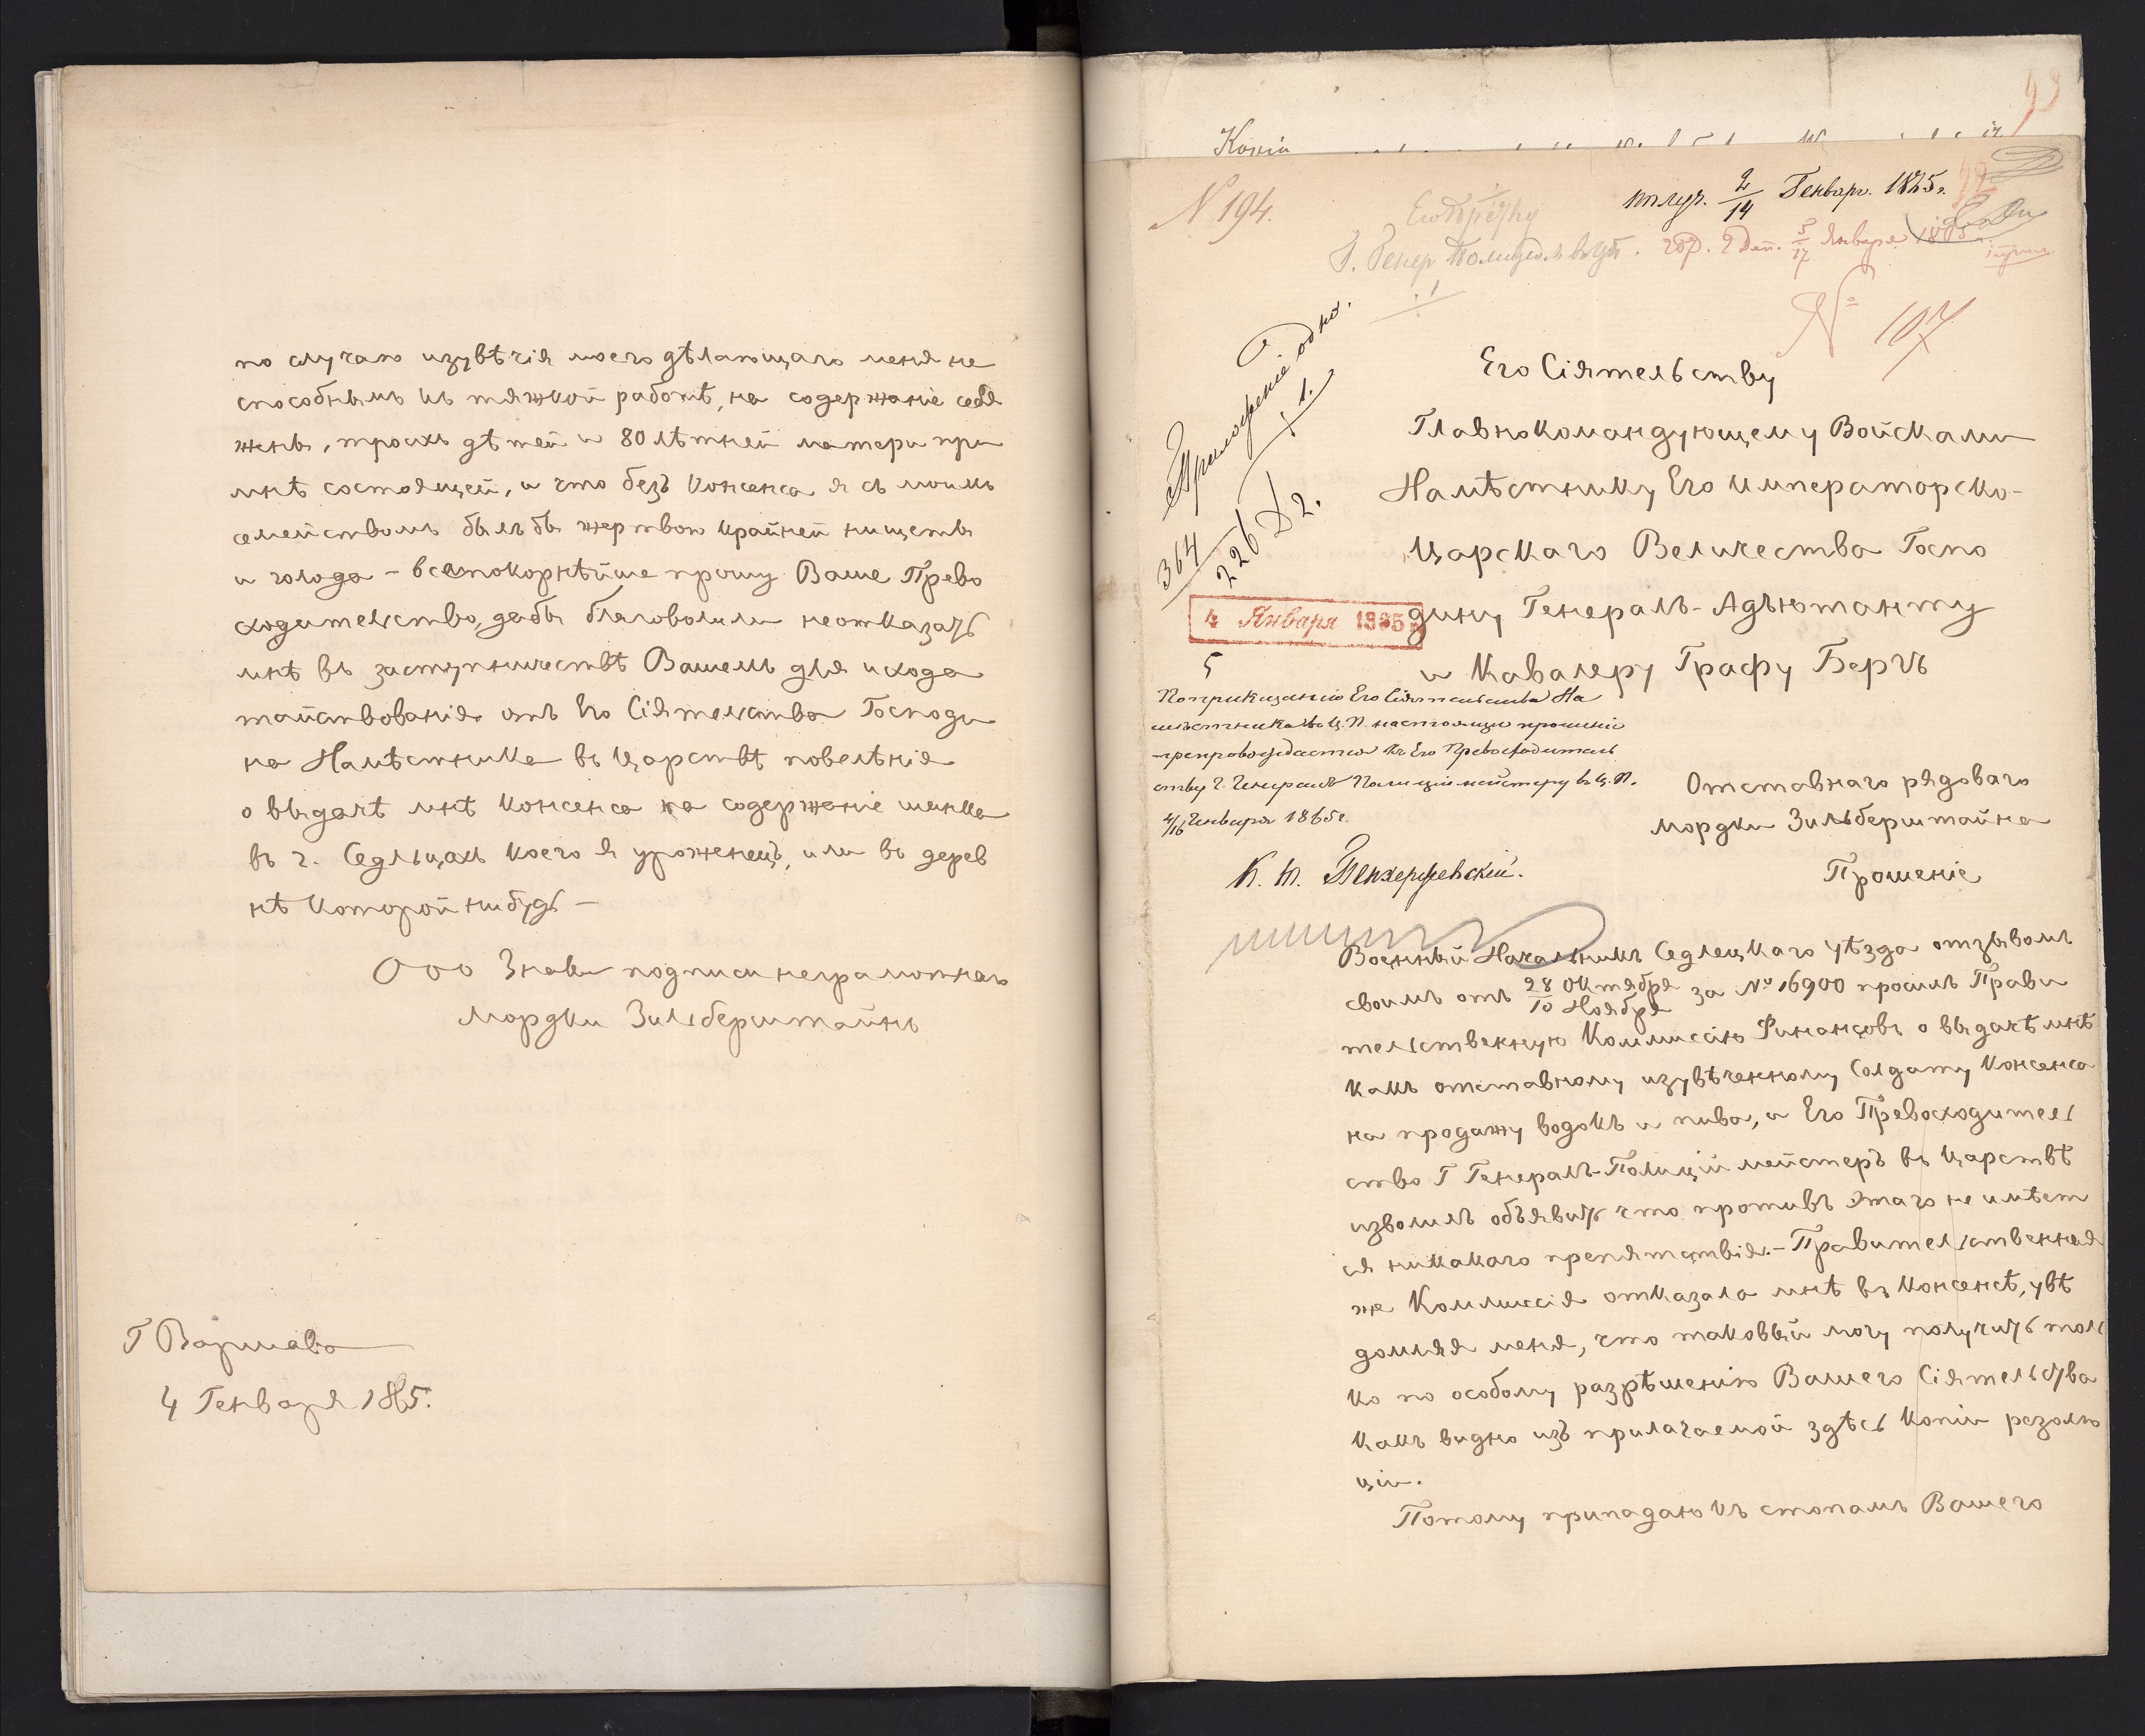 по случаю изувѣчія моего дѣлающаго меня не
способнымъ къ тяжкой работѣ, на содержаніе себя
жены, троихъ дѣтей и 80 лѣтней матери при
мнѣ состоящей, и что безъ консенса я съ моимъ
семействомъ былъ бы жертвою крайней нищеты
и голода – всепокорнѣйше прошу Ваше Прево
сходительство, дабы благоволили неотказать
мнѣ въ заступничествѣ Вашемъ для исхода
тайствованія отъ Его Сіятельства Господи
на Намѣстника въ Царствѣ повелѣнія
о выдачѣ мнѣ консенса на содержаніе шинка
въ г. Седльцахъ коего я уроженецъ, или въ дерев
нѣ которой нибудь –
ООО Знаки подписи неграмотнаго
Мордки Зильберштайнъ
Г Варшава
4 Генваря 1865.
93
Копія
N 194.
получ. 2/14 Генвар. 1865 г.
Г. Генер Полиц
5/17 Января 1865
№ 107
Приложеніе одно.
1.
364
226 2.
4 Января 1865
5
Его Сіятельству
Главнокомандующему Войсками
Намѣстнику Его Императорско-
Царскаго Величества Госпо
дину Генералъ-Адъютанту
и Кавалеру Графу Бергъ
По приказанію Его Сіятельства На
мѣстника въ Ц. П. настоящее прошеніе
препровождается къ Его Превосходитель
ству Г. Генералъ Полиціймейстеру въ Ц. П.
4/16 Января 1865 г.
Отставнаго рядоваго
Мордки Зильберштайна
Прошеніе
Военный Начальникъ Седлецкаго уѣзда отзывомъ
своимъ отъ 28 Октября/10 Ноября за № 16900 просилъ Прави
тельственную Коммиссію Финансовъ о выдачѣ мнѣ
какъ отставному изувѣченному Солдату консенса
на продажу водокъ и пива, и Его Превосходитель
ство Г Генералъ-Полиціймейстеръ въ Царствѣ
изволилъ объявить что противъ этаго не имѣет
ся никакаго препятствія. – Правительственная
же Коммиссія отказала мнѣ въ консенсѣ, увѣ
домляя меня, что таковый могу получить толь
ко по особому разрѣшенію Вашего Сіятельства
какъ видно изъ прилагаемой здѣсь копіи резолю
ціи.
Потому припадаю къ стопамъ Вашего